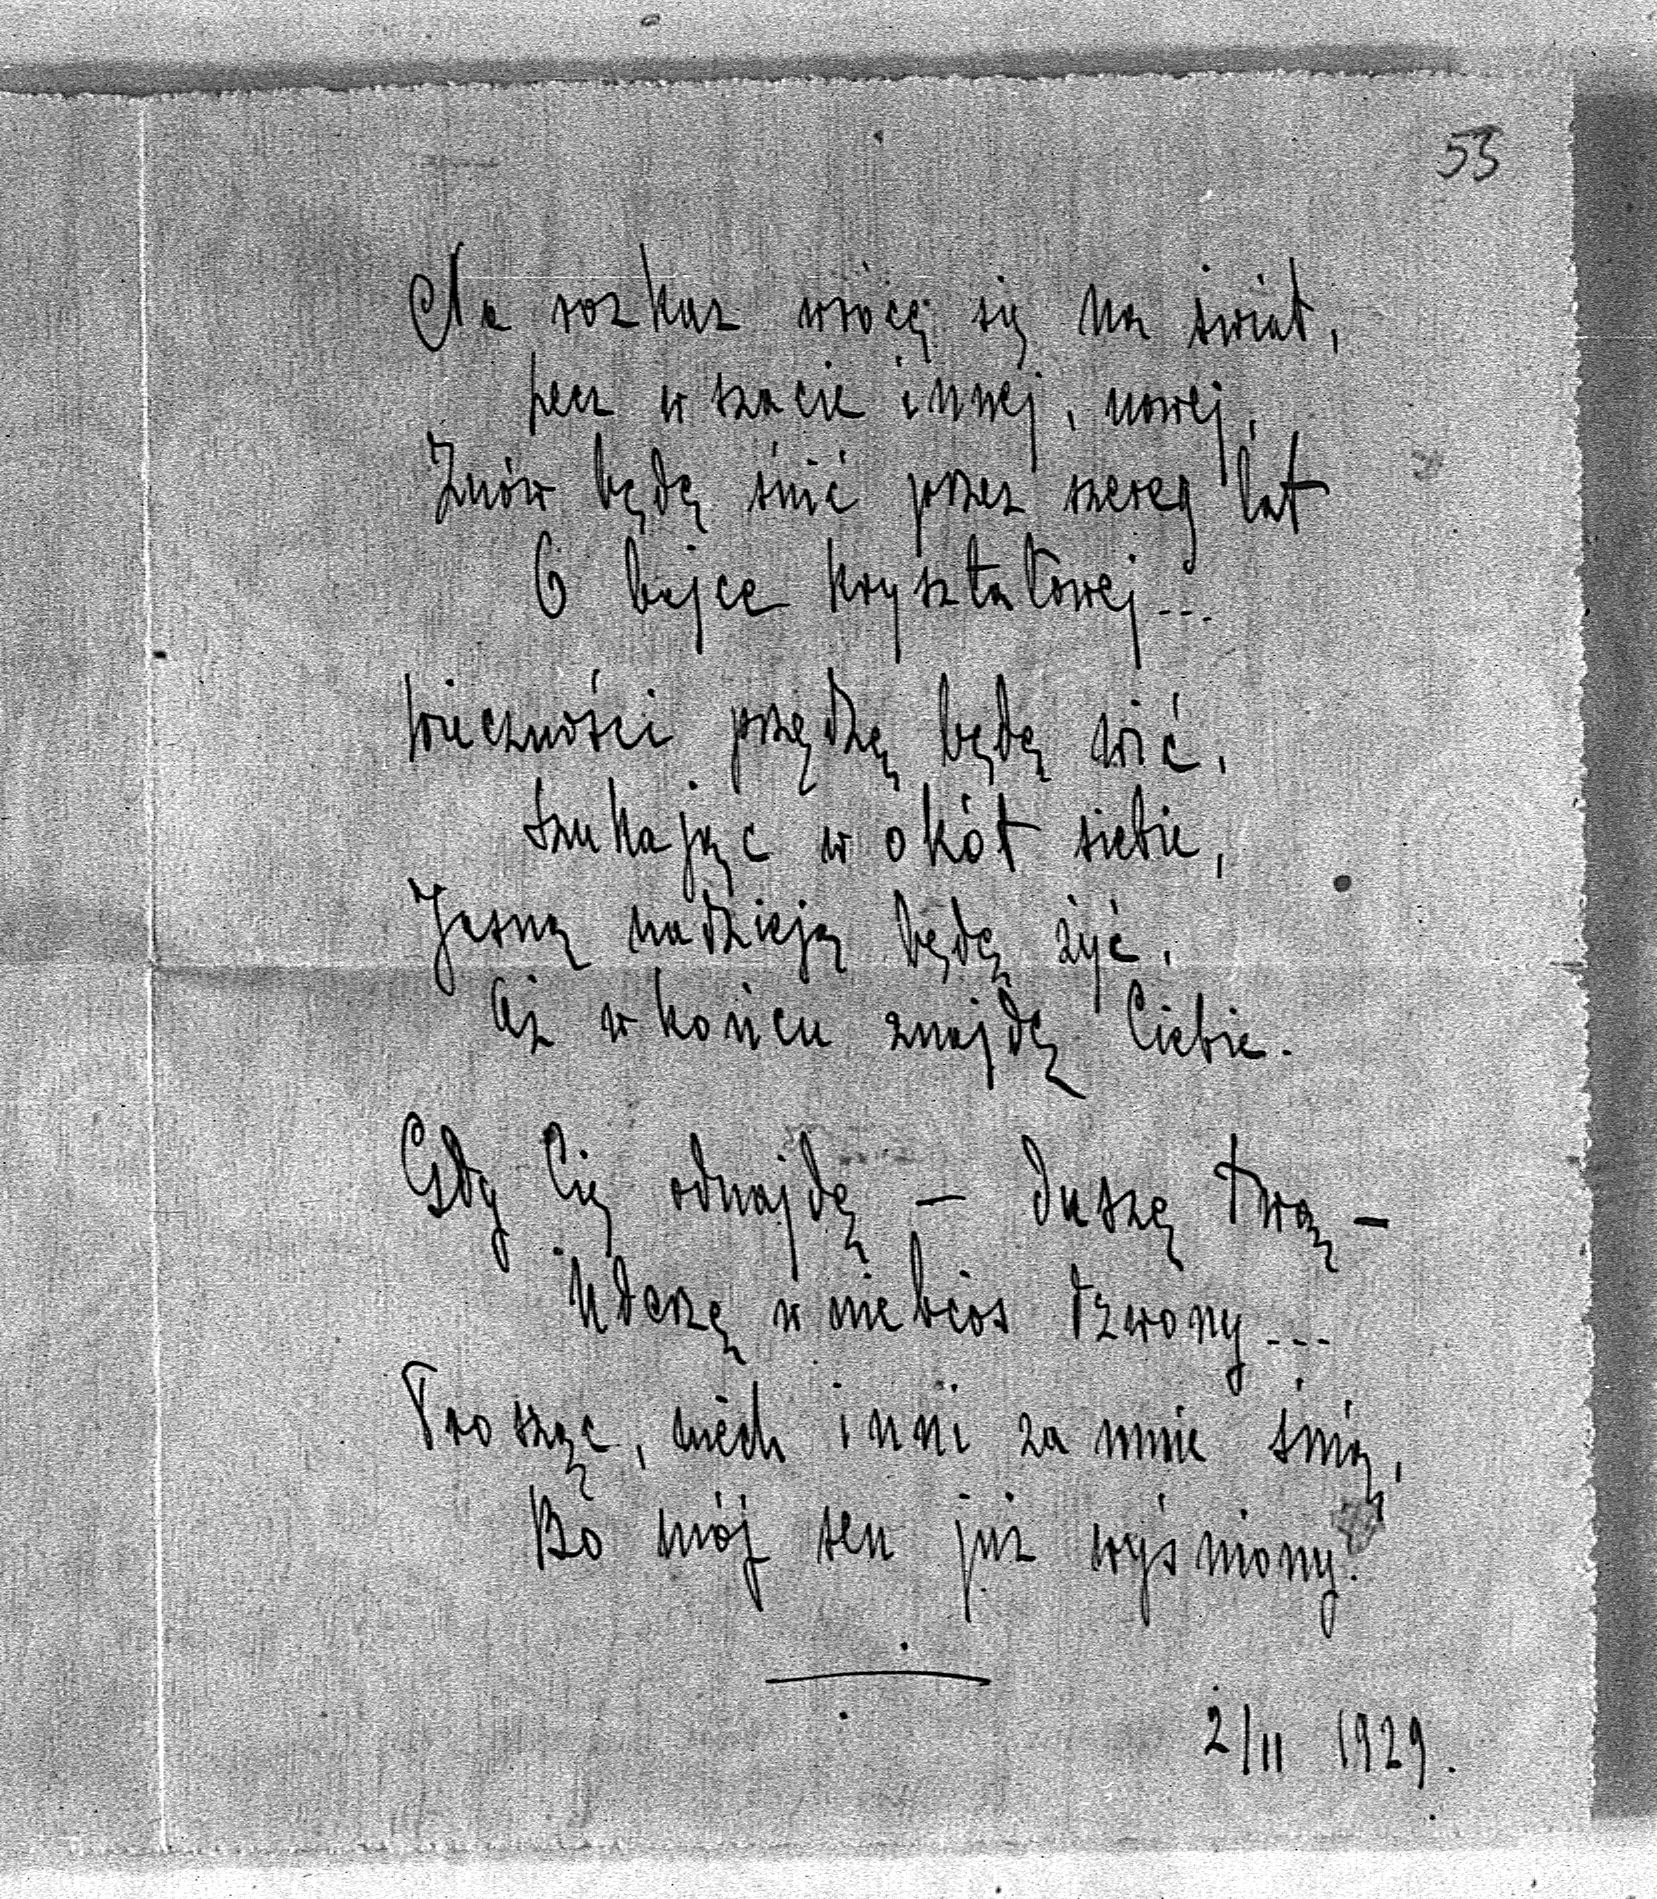 53
Na rozkaz wrócę się na świat,
Lecz w szacie innej, nowej,
Znów będę śnić przez szereg lat
O bajce kryształowej...
Wieczności przędzę będę wić,
Szukając w okół siebie,
Jasną nadzieją będę żyć,
Aż w końcu znajdę Ciebie.
Gdy Cię odnajdę – duszę Twą –
Uderzę w niebios dzwony...
Prosząc, niech inni za mnie śnią,
Bo mój sen już wyśniony.
2/II 1929.